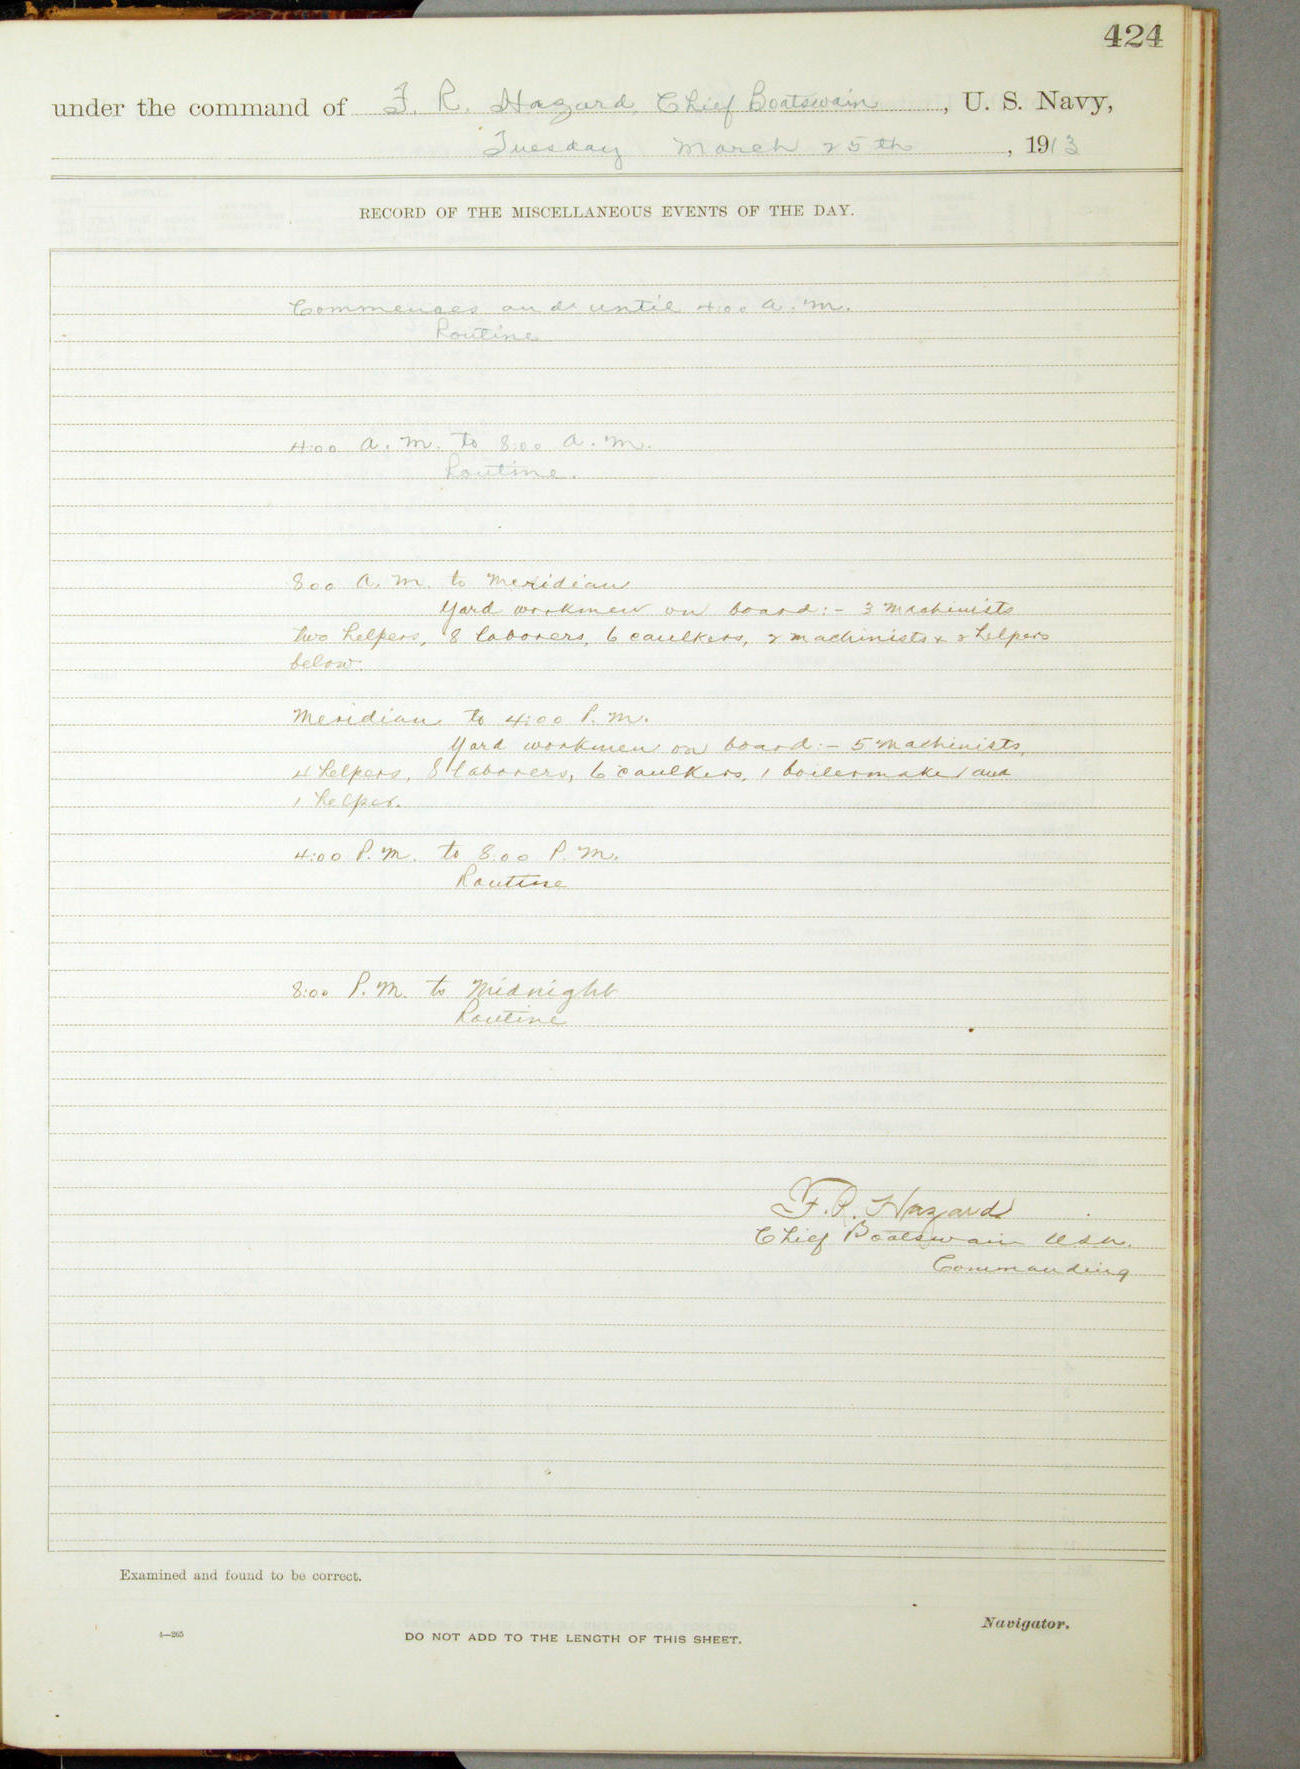 424
under the command of F. R. Hazard, Chief Boatswain, U. S. Navy,
Tuesday March 25th, 1913
RECORD OF THE MISCELLANEOUS EVENTS OF THE DAY.
Commences and until 4:00 A. M.
Routine
4:00 A. M. to 8:00 A. M.
Routine.
8:00 A. M. to Meridian
Yard workmen on board:- 3 Machinists
two helpers, 8 laborers, 6 caulkers, 2 machinists & 2 helpers
below.
Meridian to 4:00 P. M.
Yard workmen on board:- 5 Machinists,
4 helpers, 8 laborers, 6 caulkers, 1 boilermaker and
1 helper.
4:00 P. M. to 8:00 P. M.
Routine
8:00 P. M. to Midnight
Routine
F. R. Hazard
Chief Boatswain U.S.N.
Commanding
Examined and found to be correct.
Navigator.
4—265
DO NOT ADD TO THE LENGTH OF THIS SHEET.